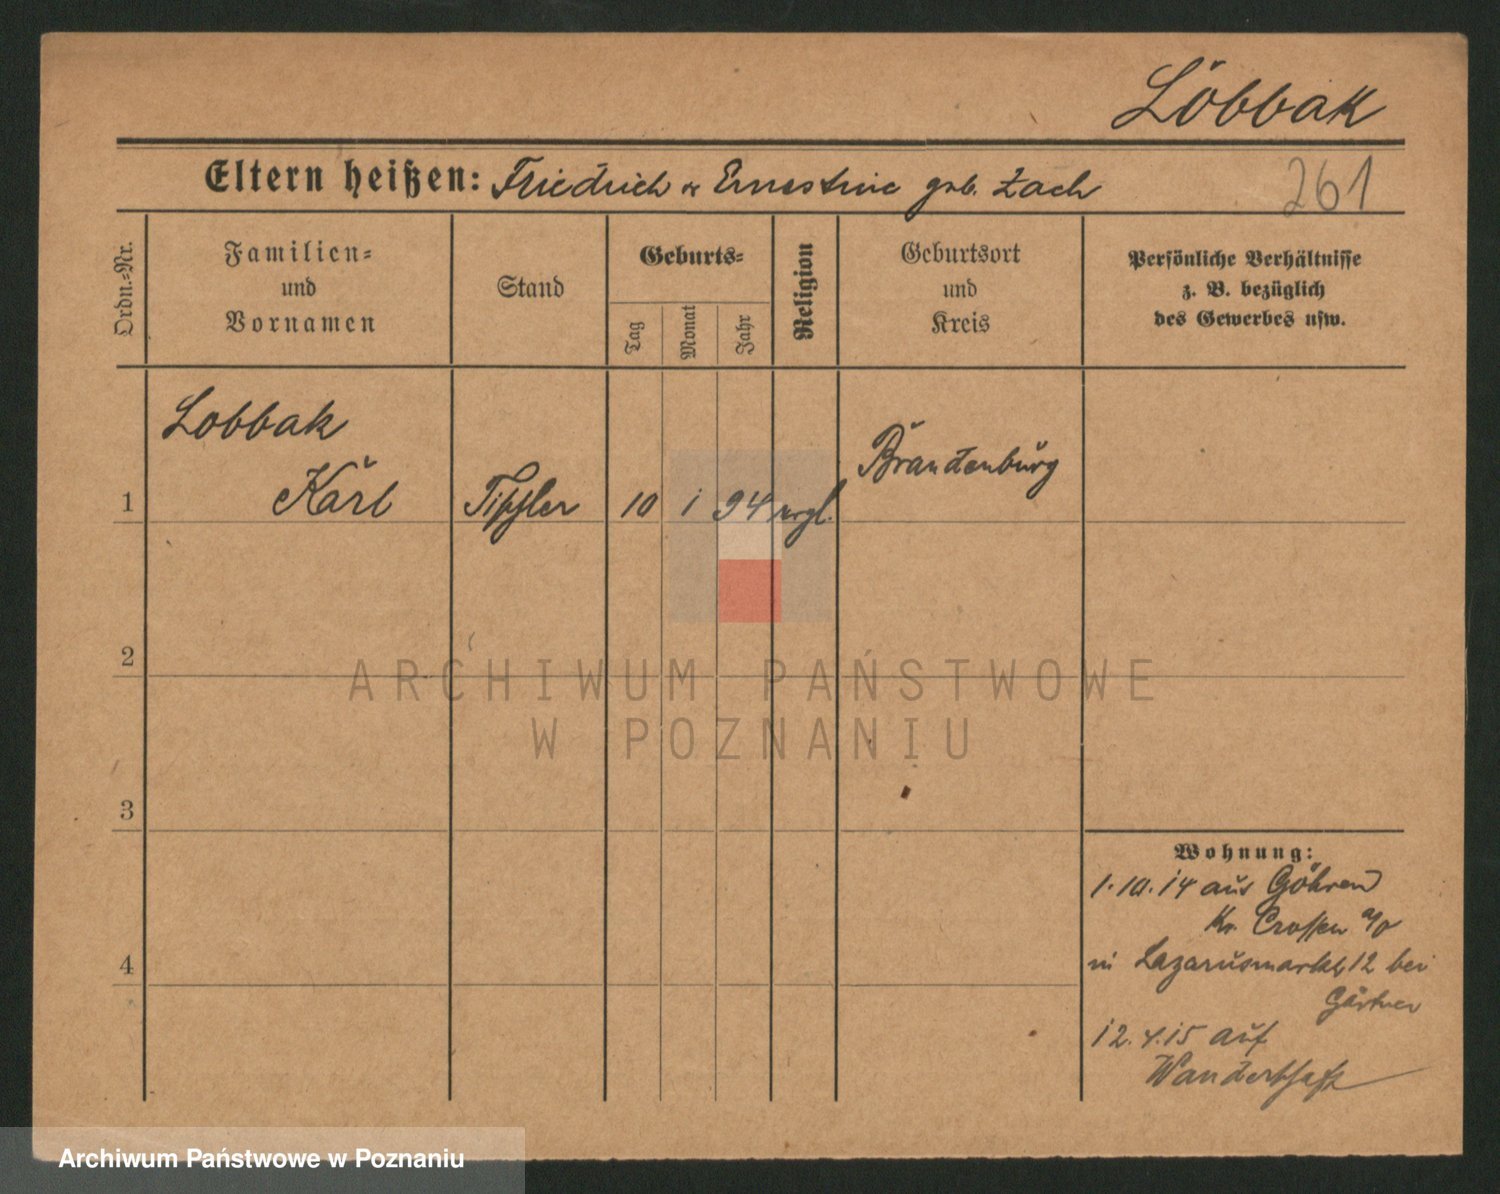 Löbbak
Eltern heißen: Friedrich u Ernestine geb. Zach
261
Ordn.-Nr.
Familien-
und
Vornamen
Stand
Geburts-
Tag
Monat
Jahr
Religion
Geburtsort
und
Kreis
Persönliche Verhältnisse
z. B. bezüglich
des Gewerbes usw.
Lobbak
Karl
1
10
1
94
Brandenburg
2
ARCHIWUM PAŃSTWOWE
W POZNANIU
3
Wohnung:
1.10.14 aus Göhren
Kr. Crossen a/O
in Lazarusmarkt 12 bei
Gärtner
4
12.4.15 auf
Wanderschaft
Archiwum Państwowe w Poznaniu